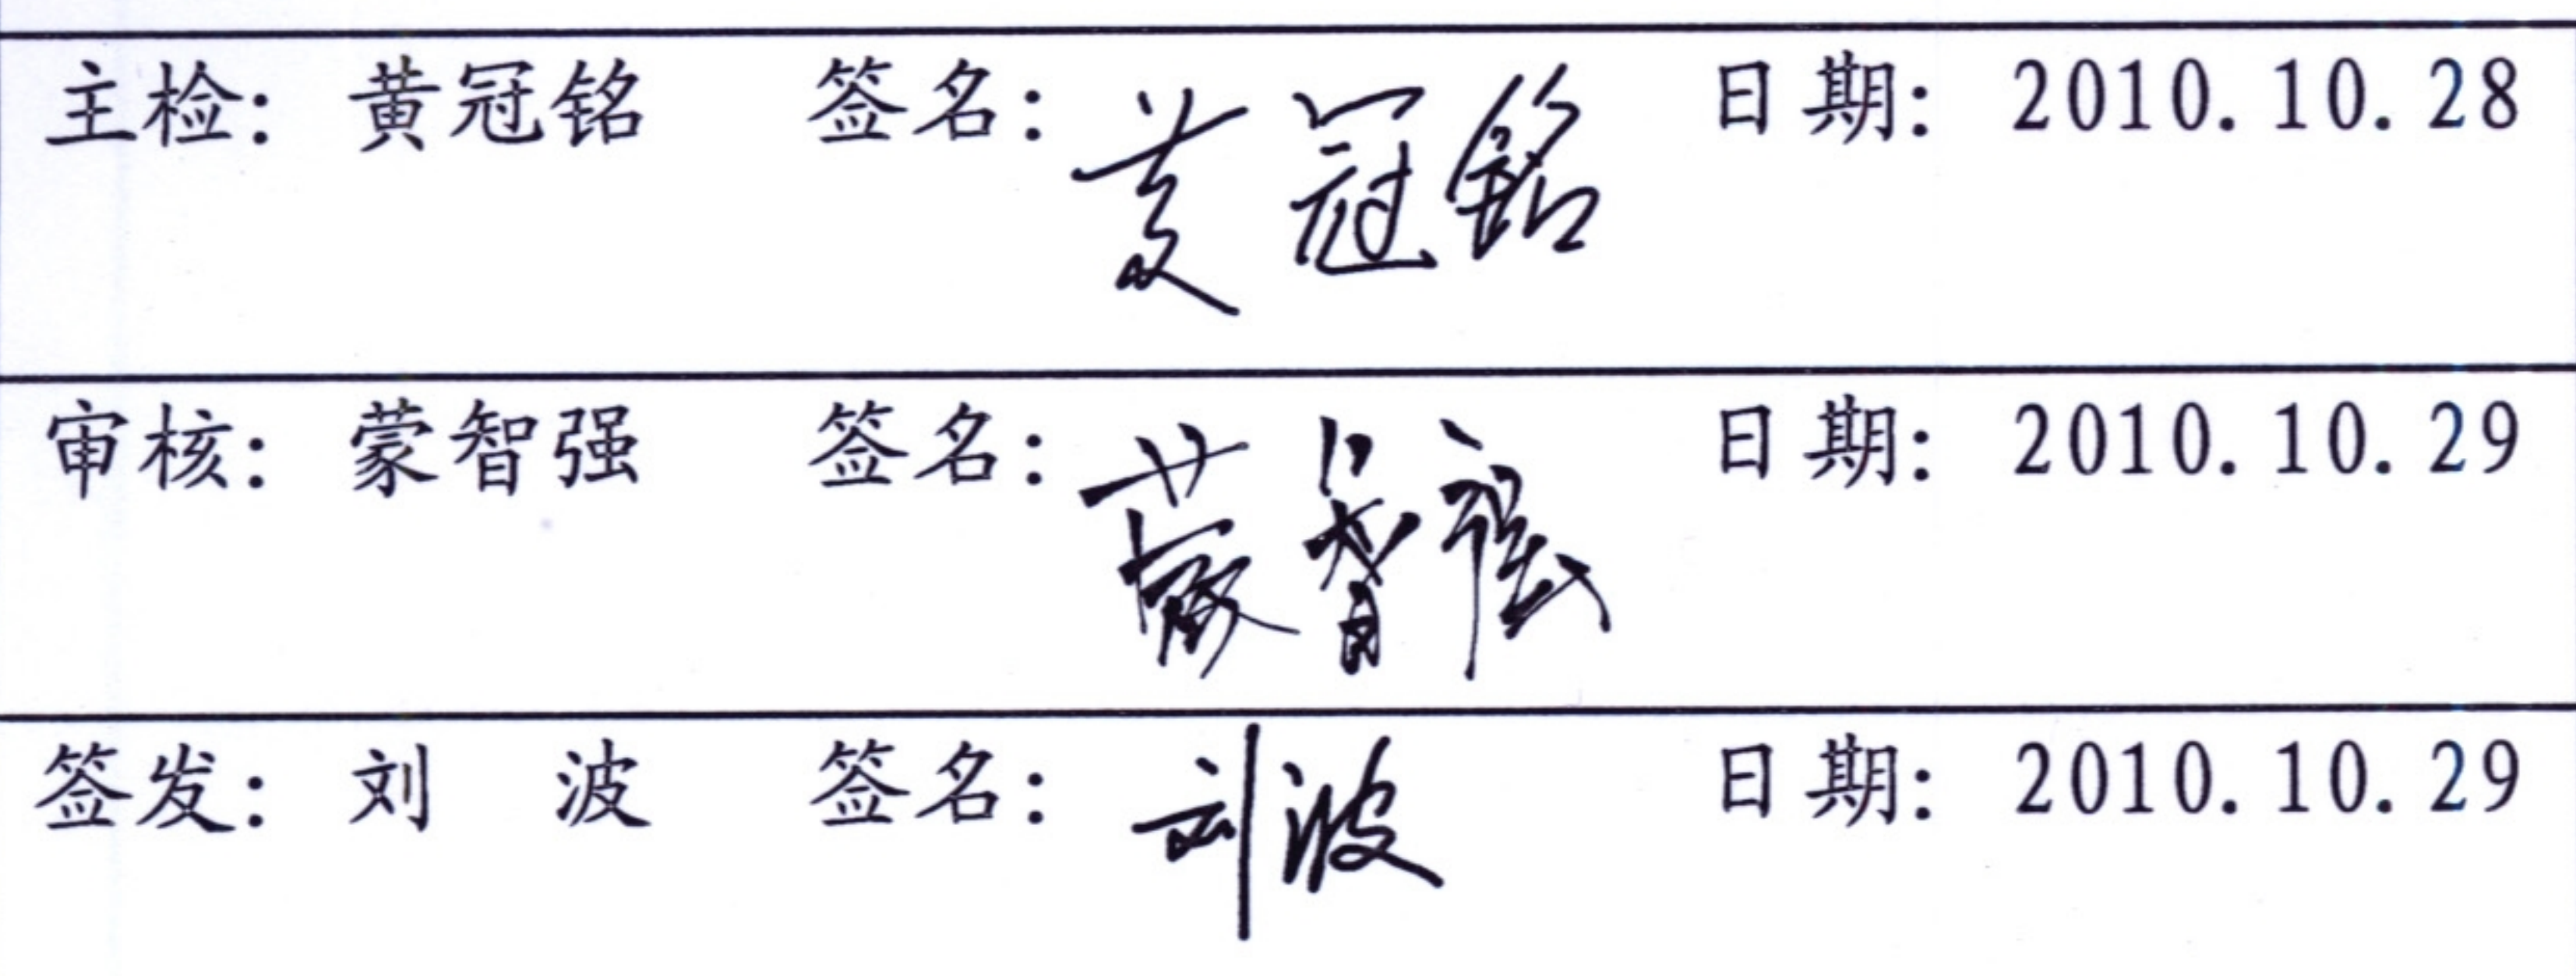 主检: 黄冠铭 签名: 黄冠铭 日期: 2010.10.28
审核: 蒙智强 签名: 蒙智强 日期: 2010.10.29
签发: 刘 波 签名: 刘波 日期: 2010.10.29